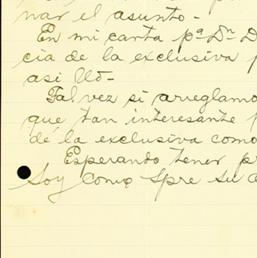 nar el asunto -
En mi carta pª Dn D
cia de la exclusiva p
asi llō-
Tal vez si arreglamo
que tan interesante p
de la exclusiva como
Esperando tener pr
Soy como spre su a